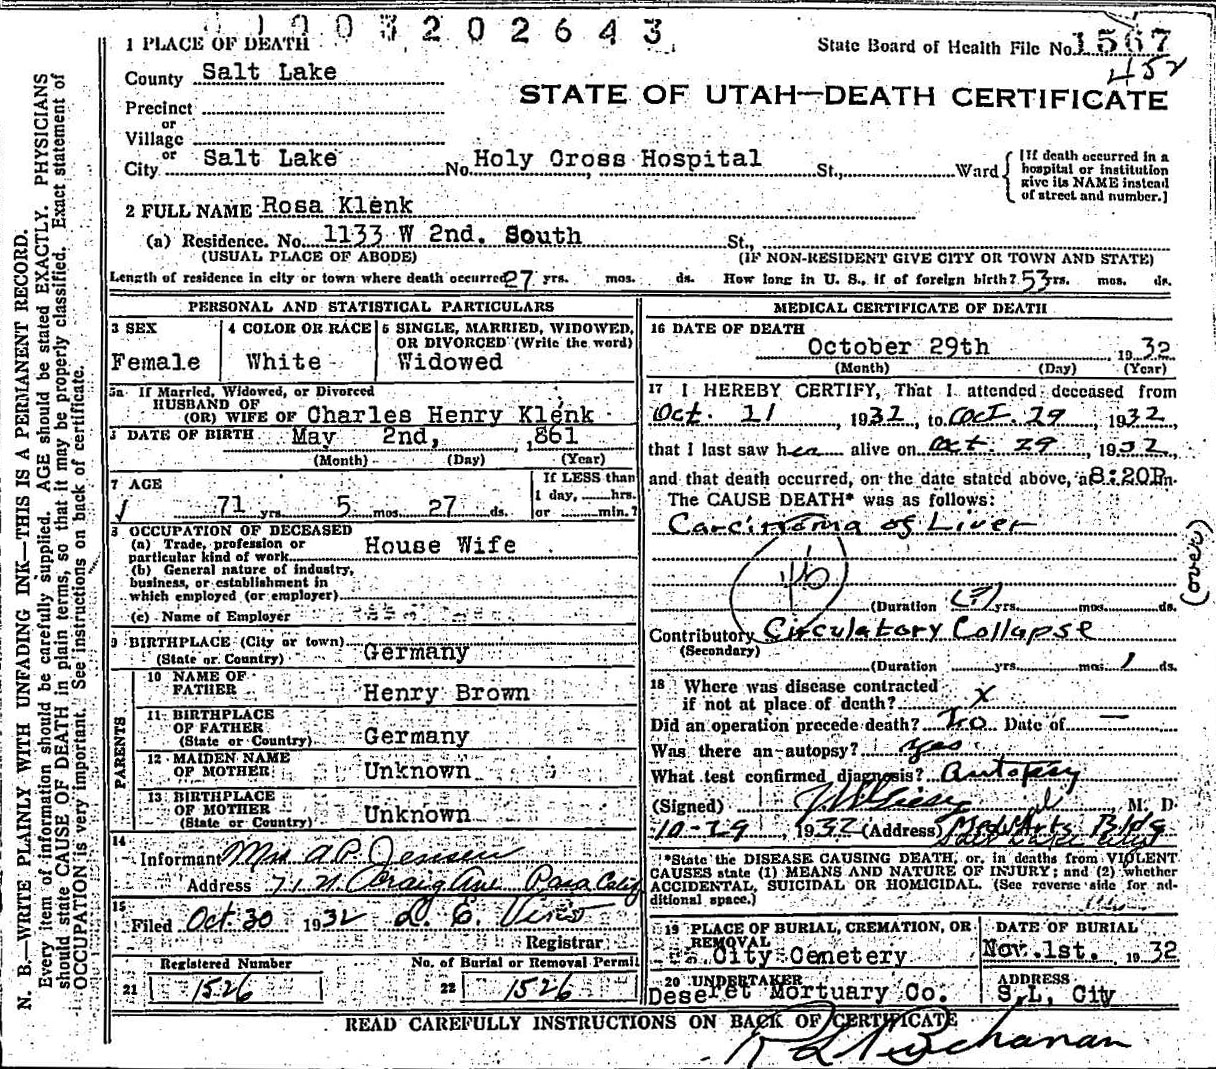 1003202643
1 PLACE OF DEATH
State Board of Health File No. 1567
452
County Salt Lake
STATE OF UTAH—DEATH CERTIFICATE
Precinct
or
Village
or
City Salt Lake No. Holy Cross Hospital St., Ward
[If death occurred in a hospital or institution give its NAME instead of street and number.]
2 FULL NAME Rosa Klenk
(a) Residence. No. 1133 W 2nd. South St.,
(USUAL PLACE OF ABODE) (IF NON-RESIDENT GIVE CITY OR TOWN AND STATE)
Length of residence in city or town where death occurred 27 yrs. mos. ds. How long in U. S., if of foreign birth? 53 yrs. mos. ds.
PERSONAL AND STATISTICAL PARTICULARS
3 SEX
Female
4 COLOR OR RACE
White
5 SINGLE, MARRIED, WIDOWED,
OR DIVORCED (Write the word)
Widowed
5a If Married, Widowed, or Divorced
HUSBAND OF
(OR) WIFE OF Charles Henry Klenk
DATE OF BIRTH May 2nd, ,861
(Month) (Day) (Year)
7 AGE
71 yrs. 5 mos. 27 ds.
If LESS than
1 day, hrs.
or min.?
8 OCCUPATION OF DECEASED
(a) Trade, profession or
particular kind of work House Wife
(b) General nature of industry,
business, or establishment in
which employed (or employer)
(c) Name of Employer
9 BIRTHPLACE (City or town)
(State or Country) Germany
PARENTS
10 NAME OF
FATHER Henry Brown
11 BIRTHPLACE
OF FATHER
(State or Country) Germany
12 MAIDEN NAME
OF MOTHER Unknown
13 BIRTHPLACE
OF MOTHER
(State or Country) Unknown
14
Informant Mrs A.P. Jensen
Address Craig Ave Pasa Calif
15
Filed Oct. 30 1932 D. E.
Registrar
Registered Number
21 1526
No. of Burial or Removal Permit
22 1526
MEDICAL CERTIFICATE OF DEATH
16 DATE OF DEATH
October 29th 1932
(Month) (Day) (Year)
17 I HEREBY CERTIFY, That I attended deceased from
Oct. 11, 1932, to Oct. 29, 1932,
that I last saw her alive on Oct. 29, 1932,
and that death occurred, on the date stated above, at 8:20P.m.
The CAUSE DEATH* was as follows:
Carcinoma of Liver
46
(over)
(Duration (?) yrs. mos. ds.
Contributory Circulatory Collapse
(Secondary)
(Duration yrs. mos. 1 ds.
18 Where was disease contracted
if not at place of death? x
Did an operation precede death? No Date of —
Was there an autopsy? yes.
What test confirmed diagnosis? Autopsy
(Signed) M. D.
10-29, 1932 (Address) Med Arts Bldg
Salt Lake City
*State the DISEASE CAUSING DEATH, or, in deaths from VIOLENT
CAUSES state (1) MEANS AND NATURE OF INJURY; and (2) whether
ACCIDENTAL, SUICIDAL OR HOMICIDAL. (See reverse side for ad-
ditional space.)
19 PLACE OF BURIAL, CREMATION, OR
REMOVAL
City Cemetery
DATE OF BURIAL
Nov. 1st. 1932
20 UNDERTAKER
Deseret Mortuary Co.
ADDRESS
S.L, City
READ CAREFULLY INSTRUCTIONS ON BACK OF CERTIFICATE
Buchanan
N. B.—WRITE PLAINLY WITH UNFADING INK—THIS IS A PERMANENT RECORD.
Every item of information should be carefully supplied. AGE should be stated EXACTLY. PHYSICIANS
should state CAUSE OF DEATH in plain terms, so that it may be properly classified. Exact statement of
OCCUPATION is very important. See instructions on back of certificate.